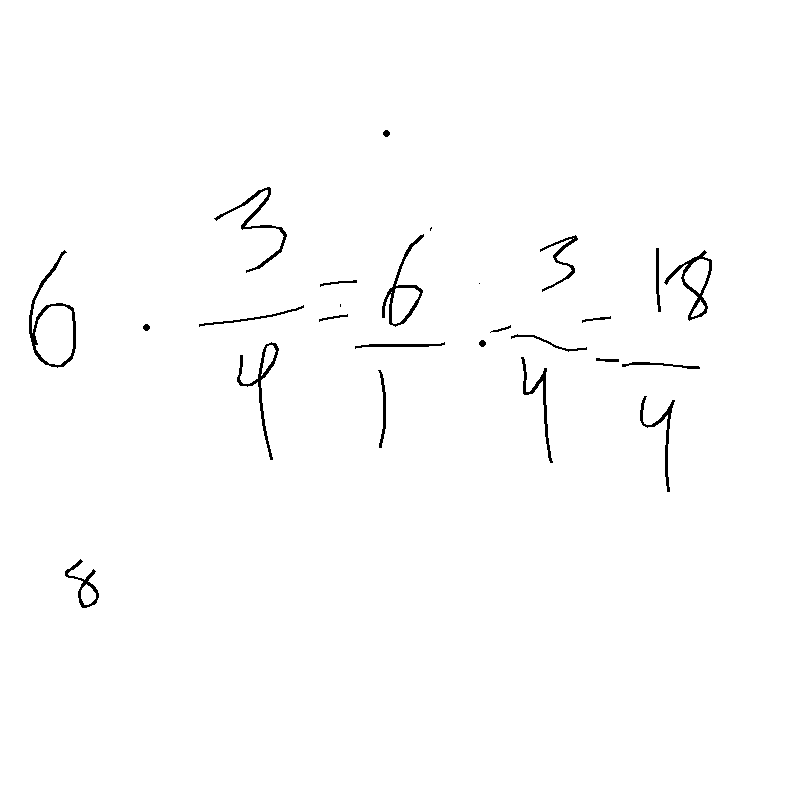 6 · 3/4 = 6/1 · 3/4 = 18/4
8